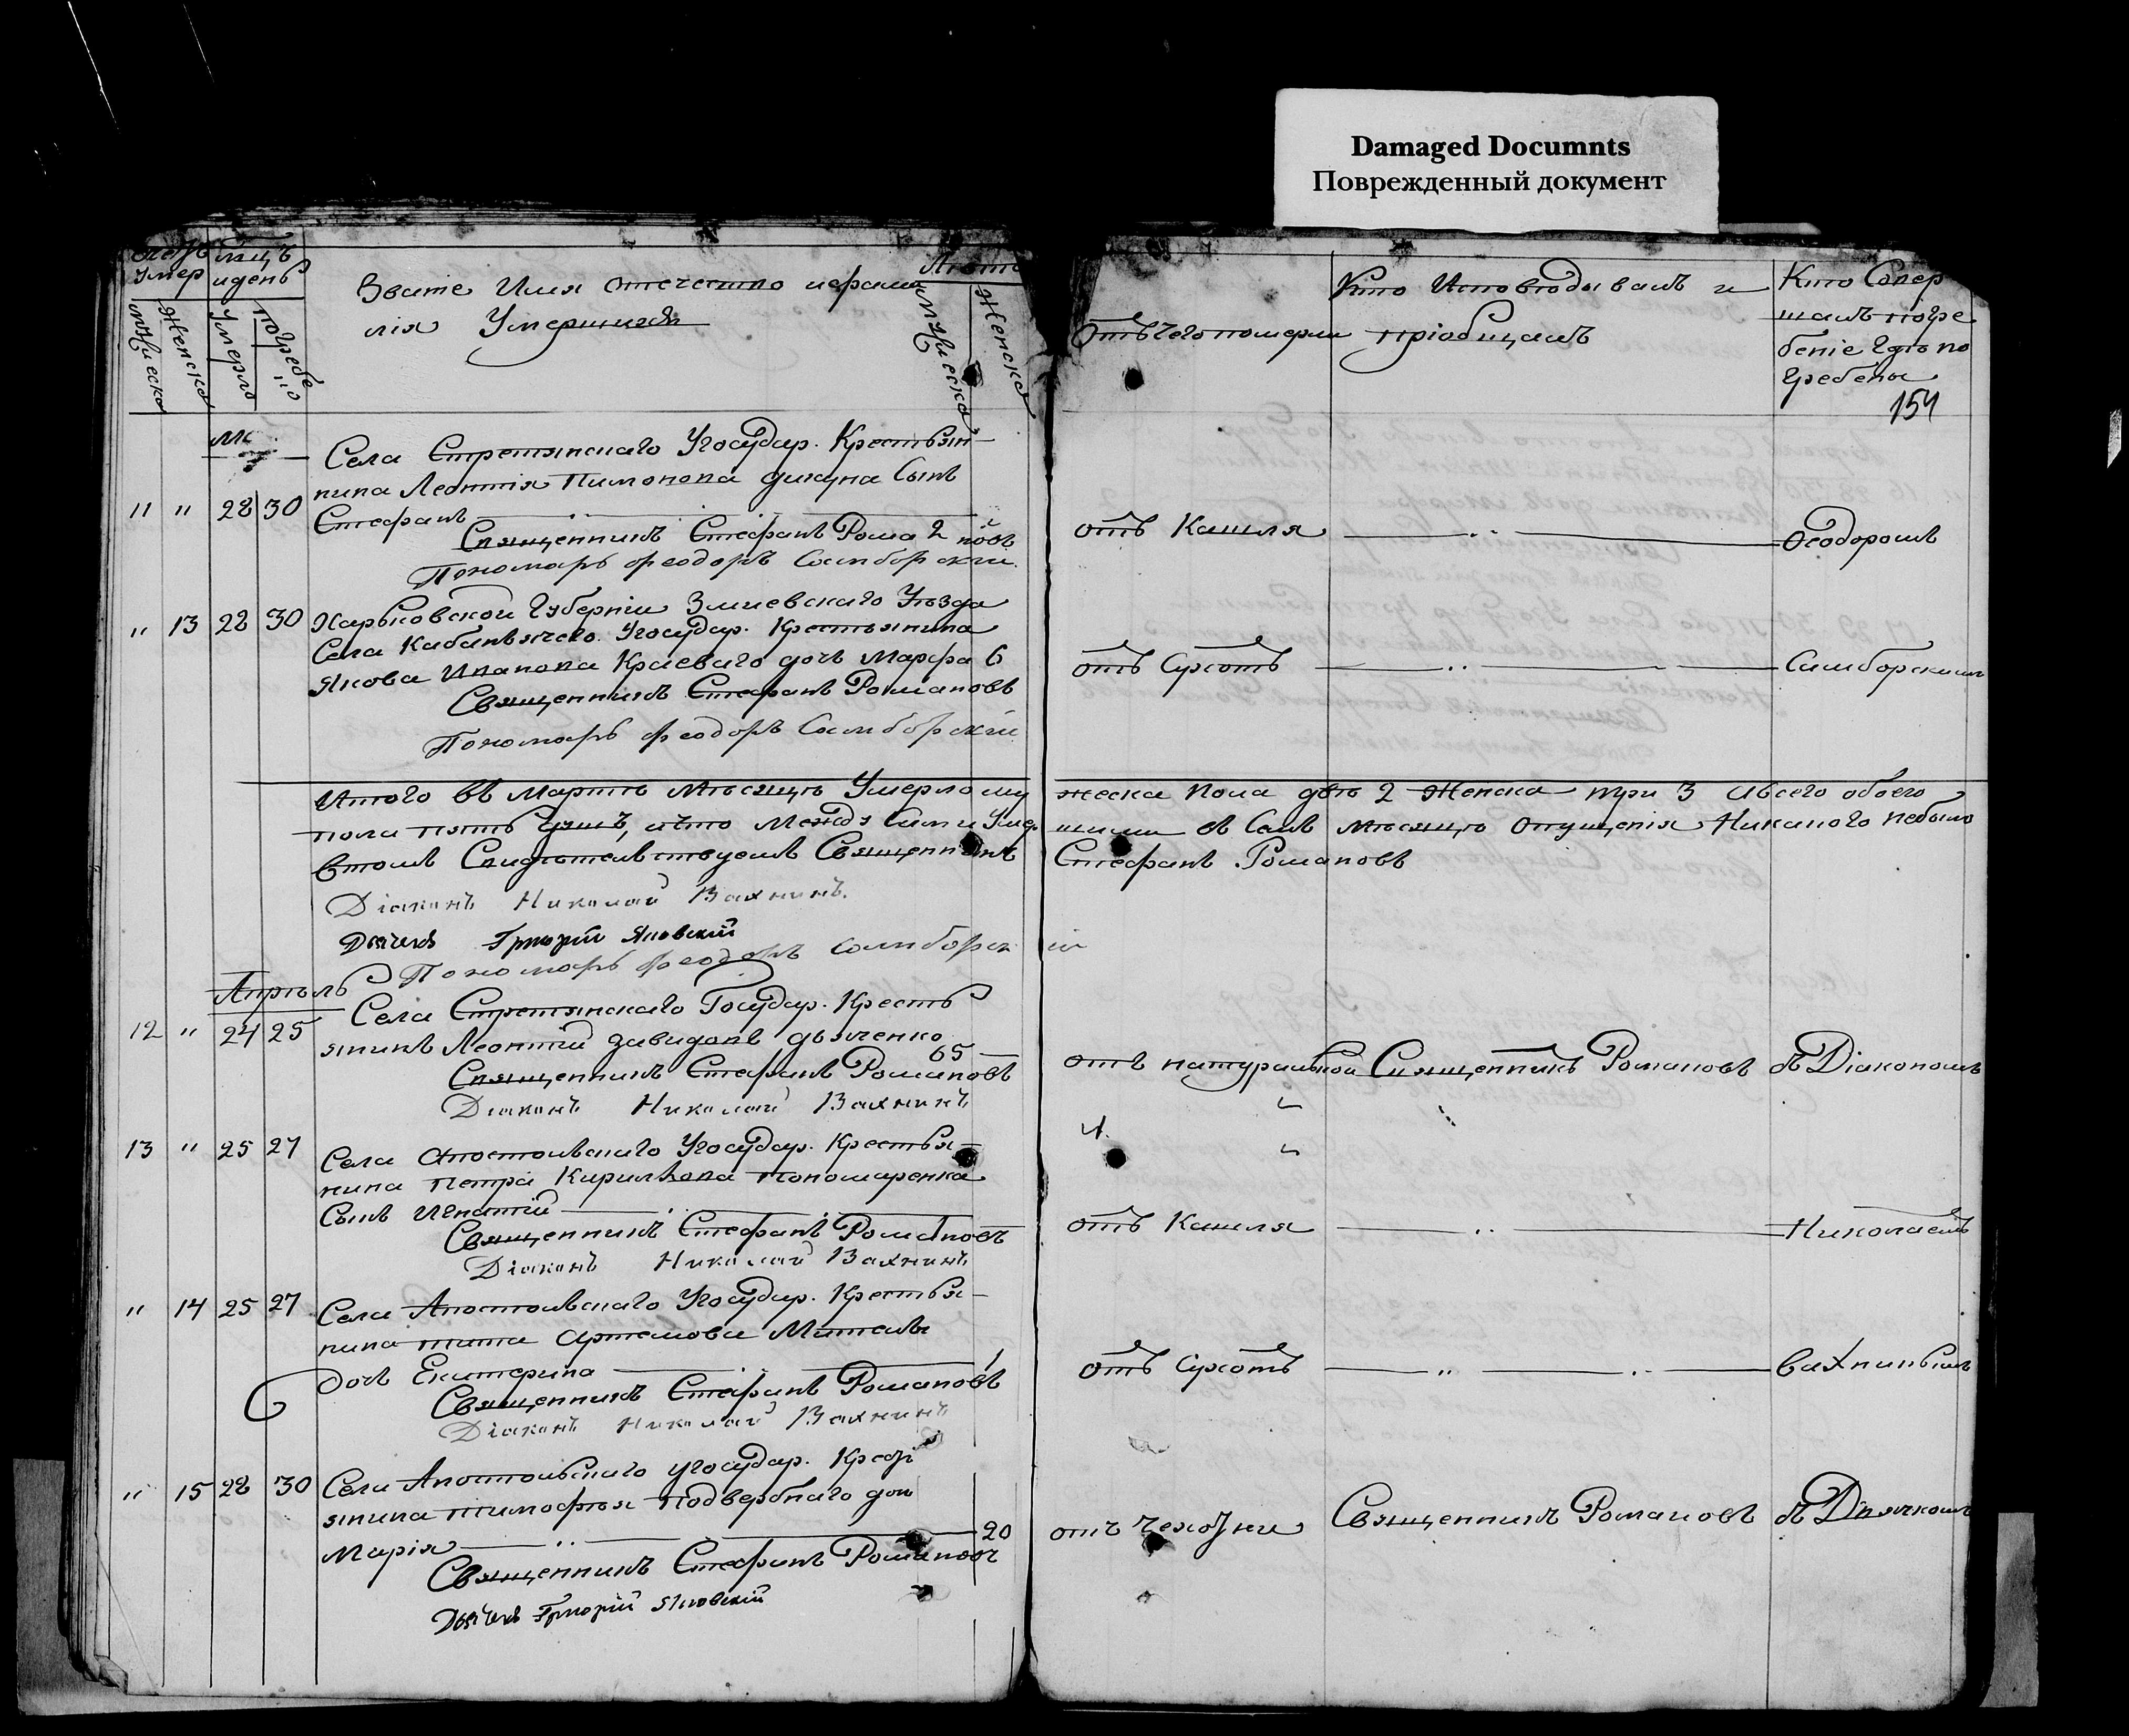 Damaged Documnts
Поврежденный документ
Умер
идень
Званіе Имя отечество ифами
лія Умершихъ
Лѣта
мужеска
Женска
Умерло
Погребе
но
мужеска
Женска
Отъ чего померли
Кто Исповѣдывалъ и
пріобщалъ
Кто Совер
шалъ погре
беніе Гдѣ по
гребены
154
Села Стретянскаго Угосудар. Крестьян-
нина Леонтія Пимонова дикуна Сынъ
" " 28 30
Стефанъ
Священникъ Стефанъ Рома 2 новъ
Пономарь Феодоръ Самборскій
отъ Кашля
Феодоромъ
" 13 28 30 Харьковской Губерніи Змиевскаго Уѣзда
Села Кабанячего. Угосудар. Крестьянина
Якова Иванова Краеваго дочь Марфа 6
Священникъ Стефанъ Романовъ
Пономарь Феодоръ Самборскій
отъ Сухотъ
Самборскимъ
Итого въ Мартѣ Мѣсяцѣ Умерло му жеска пола двѣ 2 Женска три 3 Ивсего обоего
пола пять душъ, ичто Между Сими Умер шими въ Семъ Мѣсяцѣ Опущенія Никакого небыло
втомъ Свидѣтельствуемъ Священникъ Стефанъ Романовъ
Діаконъ Николай Вахнинъ.
Дьячекъ Григорій Яновскій
Пономарь Феодоръ Самборск ій
Апрѣль
Села Стретянскаго Государ. Кресть
12 " 24 25
янинъ Леонтій давидовъ дьяченко
65
Священникъ Стефанъ Романовъ
Діаконъ Николай Вахнинъ
отъ натуральной
Священникъ Романовъ
съ Діакономъ
13 " 25 27
Села Апостольскаго Угосудар. Крестья-
нина Петра Кирилова Пономаренка
Сынъ Игнатій
Священникъ Стефанъ Романовъ
Діаконъ Николай Вахнинъ
отъ Кашля
Николаемъ
" 14 25 27
Села Апостольскаго Угосудар. Крестья-
нина тита Артемова
дочь Екатерина 1
Священникъ Стефанъ Романовъ
Діаконъ Николай Вахнинъ
отъ Сухотъ
Вахнинымъ
" 15 28 30
Села Апостольскаго Угосудар. Крест
янина тимофѣя Подвербнаго доч
Марія 20
Священникъ Стефанъ Романовъ
Дьячекъ Григорій Яновскій
отъ чехотки
Священникъ Романовъ
съ Дьячкомъ